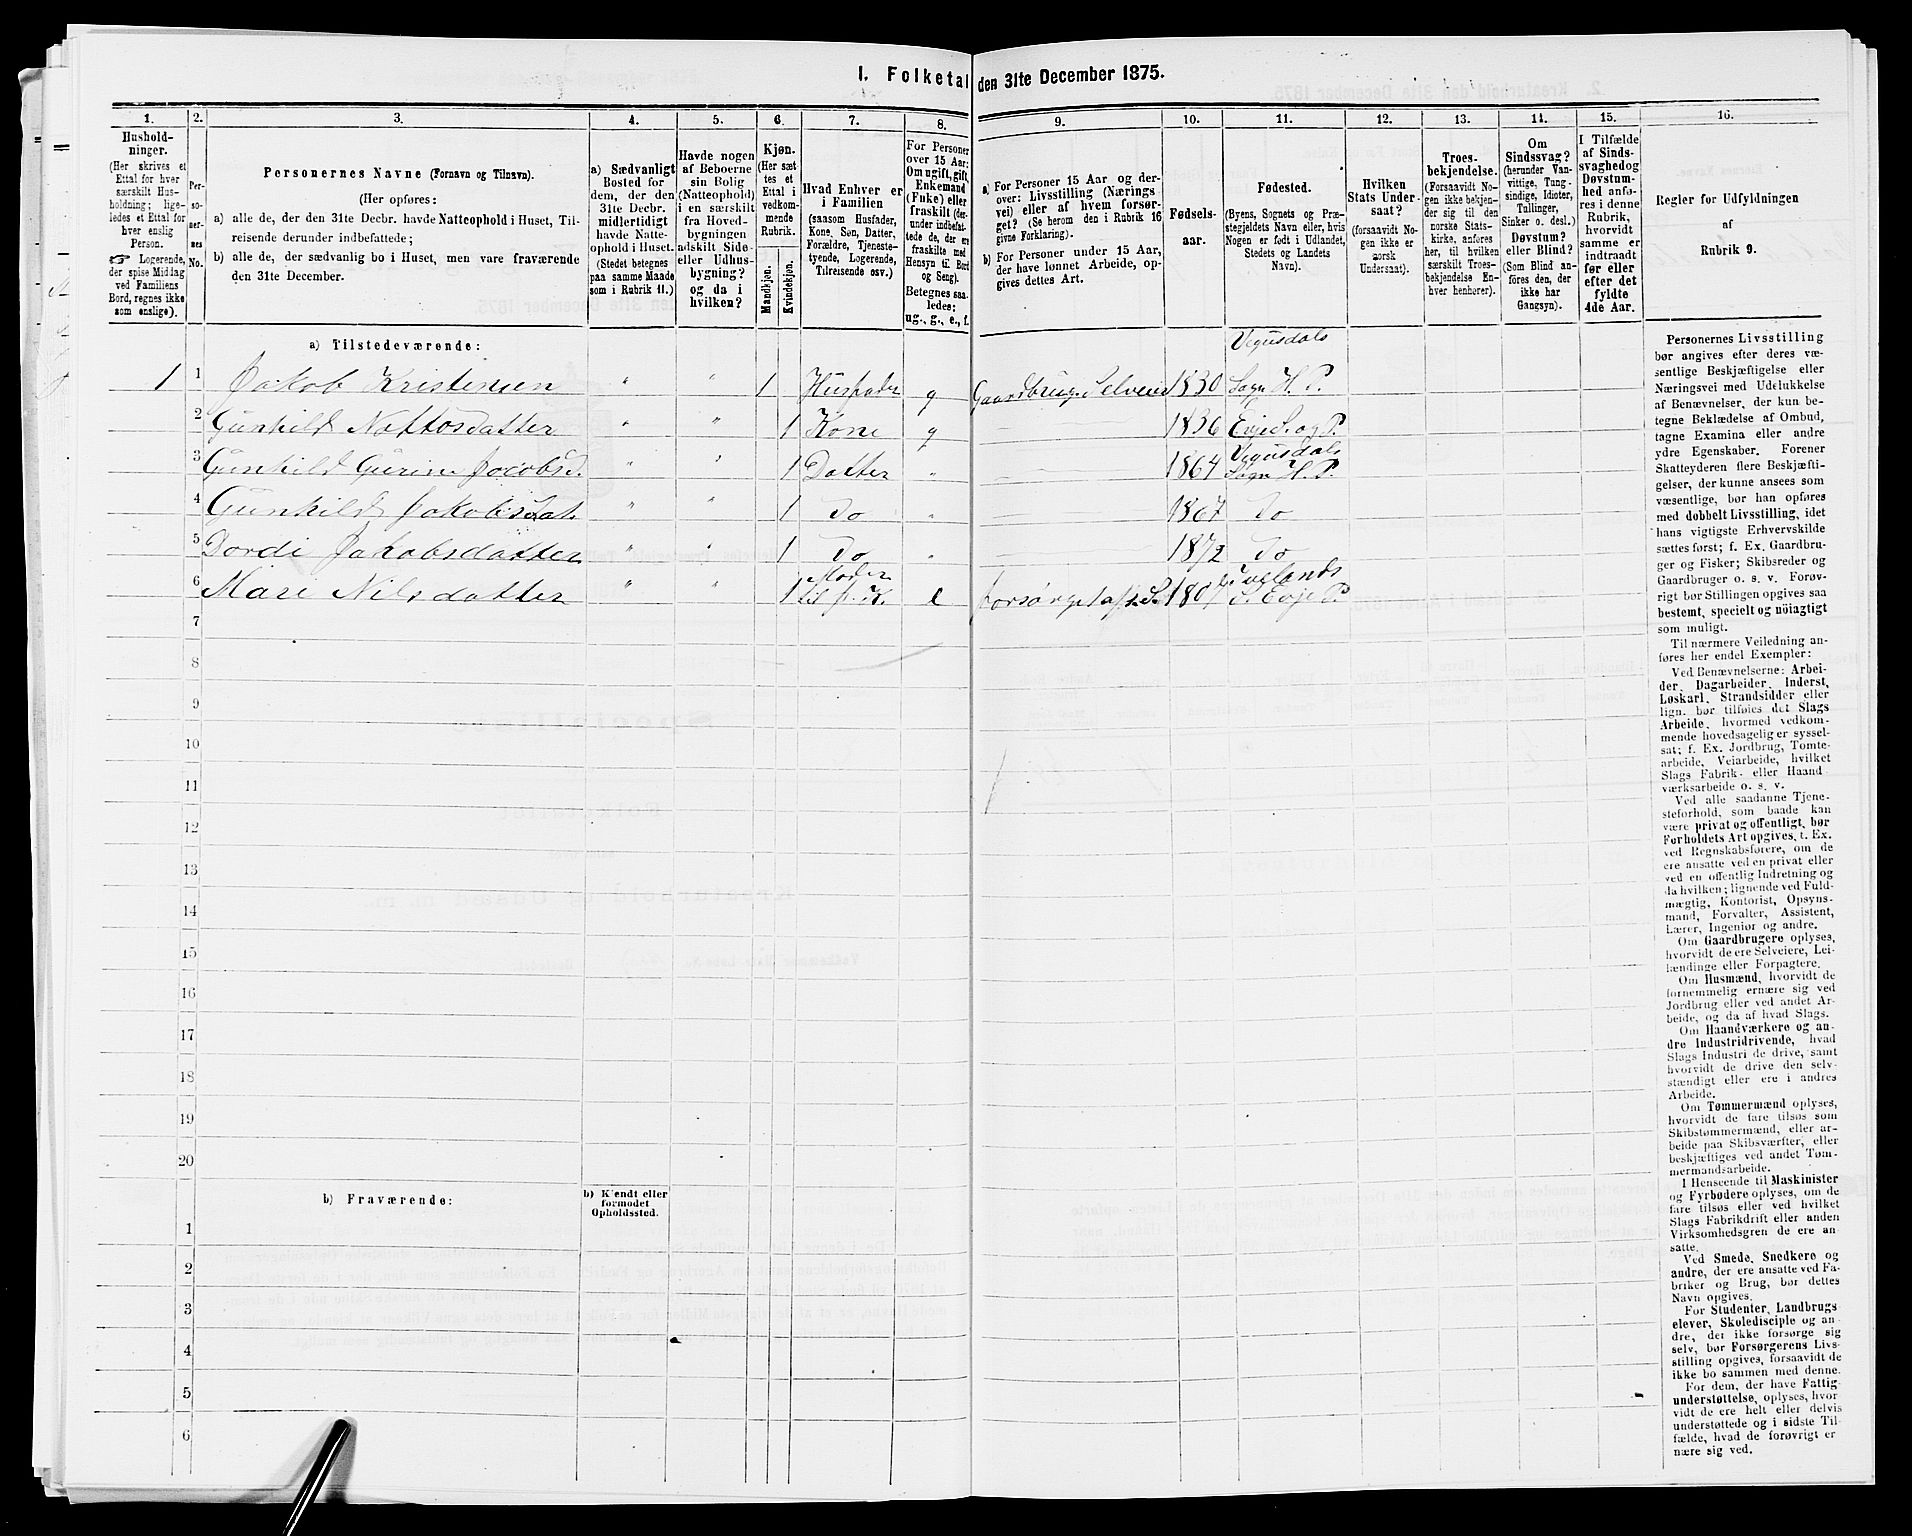 I. Folketal den 31te December 1875.
1. 2. 3. 4. 5. 6. 7. 8. 9. 10. 11. 12. 13. 14. 15. 16.
Hushold-
ninger.
(Her skrives et
Ettal for hver
særskilt Hus-
holdning; lige-
ledes et Ettal for
hver enslig
Person.
☞ Logerende,
der spise Middag
ved Familiens
Bord, regnes ikke
som enslige).
Per-
so-
ner-
nes
No.
Personernes Navne (Fornavn og Tilnavn).
(Her opføres:
a) alle de, der den 31te Decbr. havde Natteophold i Huset, Til-
reisende derunder indbefattede;
b) alle de, der sædvanlig bo i Huset, men vare fraværende
den 31te December.
a) Sædvanligt
Bosted for
dem, der den
31te Decbr.
midlertidigt
havde Natte-
ophold i Huset.
(Stedet betegnes
paa samme Maade
som i Rubrik II.)
Havde nogen
af Beboerne
sin Bolig
(Natteophold)
i en særskilt
fra Hoved-
bygningen
adskilt Side-
eller Udhus-
bygning?
og da i
hvilken?
Kjøn.
(Her sæt
tes et
Ettal i
vedkom-
mende
Rubrik.
Mandkjøn.
Kvindekjøn.
Hvad Enhver er
i Familien
(saasom Husfader,
Kone, Søn, Datter,
Forældre, Tjeneste-
tyende, Logerende,
Tilreisende osv.)
For Personer
over 15 Aar:
Om ugift, gift,
Enkemand
(Enke) eller
fraskilt (der-
under indbefat-
tede de, der ere
fraskilte med
Hensyn til Bord
og Seng).
Betegnes saa-
ledes:
ug., g., e., f.
a) For Personer 15 Aar og der-
over: Livsstilling (Nærings-
vei) eller af hvem forsør-
get? (Se herom den i Rubrik 16
givne Forklaring).
b) For Personer under 15 Aar,
der have lønnet Arbeide, op-
gives dettes Art.
Fødsels-
aar.
Fødested.
(Byens, Sognets og Præ-
stegjeldets Navn eller, hvis
Nogen er født i Udlandet,
Stedets og Landets
Navn).
Hvilken
Stats Under-
saat?
(forsaavidt No-
gen ikke er
norsk
Undersaat).
Troes-
bekjendelse.
(Forsaavidt No-
gen ikke bekjen-
der sig til den
norske Stats-
kirke, anføres
her, til hvilken
særskilt Troes-
bekjendelse En-
hver henhører).
Om
Sindssvag?
(herunder Van-
vittige, Tung-
sindige, Idioter,
Tullinger,
Sinker o. desl.)
Døvstum?
eller Blind?
(Som Blind an-
føres den, der
ikke har
Gangsyn).
I Tilfælde
af Sinds-
svaghed og
Døvstum-
hed anfø-
res i denne
Rubrik,
hvorvidt
samme er
indtraadt
før eller
efter det
fyldte
4de Aar.
Regler for Udfyldningen
af
Rubrik 9.
a) Tilstedeværende:
1 1 Jakob Kristensen " " 1 Husfader g Gaardbrug. Selveier 1830 Vegusdals Sogn H. P.
2 Gunhild Nottosdatter " " 1 Kone g — 1836 Evje S. og P.
3 Gunhild Gurine Jacobsd. " " 1 Datter " — 1864 Vegusdals Sogn H. P.
4 Gunhild Jakobsdat. " " 1 Do " — 1867 Do
5 Dordi Jakobsdatter " " 1 Do " — 1872 Do
6 Mari Nilsdatter " " 1 Moder til J. K. e forsørget af S. Ivelands S. Evje P.
7
8
9
10
11
12
13
14
15
16
17
18
19
20
b) Fraværende:
b) Kjendt eller
formodet
Opholdssted.
1
2
3
4
5
6
Personernes Livsstilling
bør angives efter deres væ-
sentlige Beskjæftigelse eller
Næringsvei med Udelukkelse
af Benævnelser, der kun be-
tegne Beklædelse af Ombud,
tagne Examina eller andre
ydre Egenskaber. Forener
Skatteyderen flere Beskjæfti-
gelser, der kunne ansees som
væsentlige, bør han opføres
med dobbelt Livsstilling, idet
hans vigtigste Erhvervskilde
sættes først; f. Ex. Gaardbru-
ger og Fisker; Skibsreder og
Gaardbruger o. s. v. Forøv-
rigt bør Stillingen opgives saa
bestemt, specielt og nöiagtigt
som muligt.
Til nærmere Veiledning an-
føres her endel Exempler:
Ved Benævnelserne: Arbei-
der, Dagarbeider, Inderst,
Løskarl, Strandsidder eller
lign. bør tilføies det Slags
Arbeide, hvormed vedkom-
mende hovedsagelig er syssel-
sat; f. Ex. Jordbrug, Tomte-
arbeide, Veiarbeide, hvilket
Slags Fabrik- eller Haand
værksarbeide o. s. v.
Ved alle saadanne Tjene-
steforhold, som baade kan
være privat og offentligt, bør
Forholdets Art opgives, t. Ex.
ved Regnskabsførere, om de
ere ansatte ved en privat eller
ved en offentlig Indretning og
da hvilken; lignende ved Fuld-
mægtig, Kontorist, Opsyns-
mand, Forvalter, Assistent,
Lærer, Ingeniør og andre.
Om Gaardbrugere oplyses,
hvorvidt de ere Selveiere, Lei-
lændinge eller Forpagtere.
Om Husmænd, hvorvidt de
fornemmelig ernære sig ved
Jordbrug eller ved andet Ar-
beide, og da af hvad Slags.
Om Haandværkere og an-
dre Industridrivende, hvad
Slags Industri de drive, samt
hvorvidt de drive den selv-
stændigt eller ere i andres
Arbeide.
Om Tømmermænd oplyses,
hvorvidt de fare tilsøs som
Skibstømmermænd, eller ar-
beide paa Skibsværfter, eller
beskjæftiges ved andet Tøm-
mermandsarbeide.
I Henseende til Maskinister
og Fyrbødere oplyses, om de
fare tilsøs eller ved hvilket
Slags Fabrikdrift eller anden
Virksomhedsgren de ere an-
satte.
Ved Smede, Snedkere og
andre, der ere ansatte ved Fa-
briker og Brug, bør dettes
Navn opgives.
For Studenter, Landbrugs
elever, Skoledisciple og an-
dre, der ikke forsørge sig
selv, bør Forsørgerens Livs-
stilling opgives, forsaavidt de
ikke bo sammen med denne.
For dem, der have Fattig-
understøttelse, oplyses, hvor-
vidt de ere helt eller delvis
understøttede og i sidste Til-
fælde, hvad de forøvrigt er
nære sig ved.